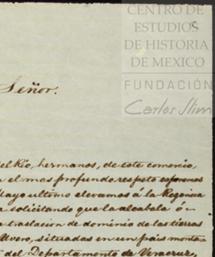 CENTRO DE
ESTUDIOS
DE HISTORIA
DE MEXICO
FUNDACIÓN
Carlos Slim
Señor.
del Rio, hermanos, de este comercio
el mas profundo respeto esponemos
Mayo ultimo elevamos á la Regencia
solicitando que la alcabala ó
traslacion de dominio de las tierras
situadas en un pais monta
del Departamento de Veracruz,